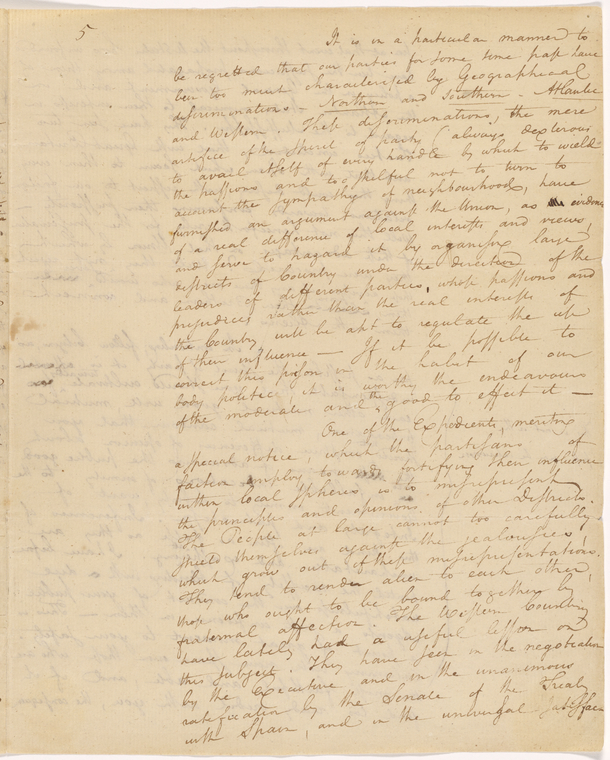 5
It is in a particular manner to
be regretted that our parties for some time past have
been too much characterised by Geographical
discriminations – Northern and Southern – Atlantic
and Western. These discriminations, the mere
artifice of the spirit of party (always dexterous
to avail itself of every handle by which to wield
the passions and too skilful not to turn to
account the sympathy of neighbourhood, have
furnished an argument against the Union, as evidence
of a real difference of local interests and views,
and serve to hazard it by organising large
districts of Country under the direction of the
leaders of different parties, whose passions and
prejudices rather than the real interests of
the Country will be apt to regulate the use
of their influence – If it be possible to
correct this poison in the habit of our
body politic, it is worthy the endeavours
of the moderate and the good to effect it –
One of the Expedients, meriting
a special notice, which the partisans of
faction employ towards fortifying their influence
within local spheres is to misrepresent
the principles and opinions of other Districts.
The People at large cannot too carefully
shield themselves against the jealousies,
which grow out of these misrepresentations.
They tend to render alien to each other,
those who ought to be bound together by
fraternal affection. The Western Country
have lately had a useful lesson on
this subject. They have seen in the negotiation
by the Executive and in the unanimous
ratification by the Senate of the Treaty
with Spain, and in the universal satisfac